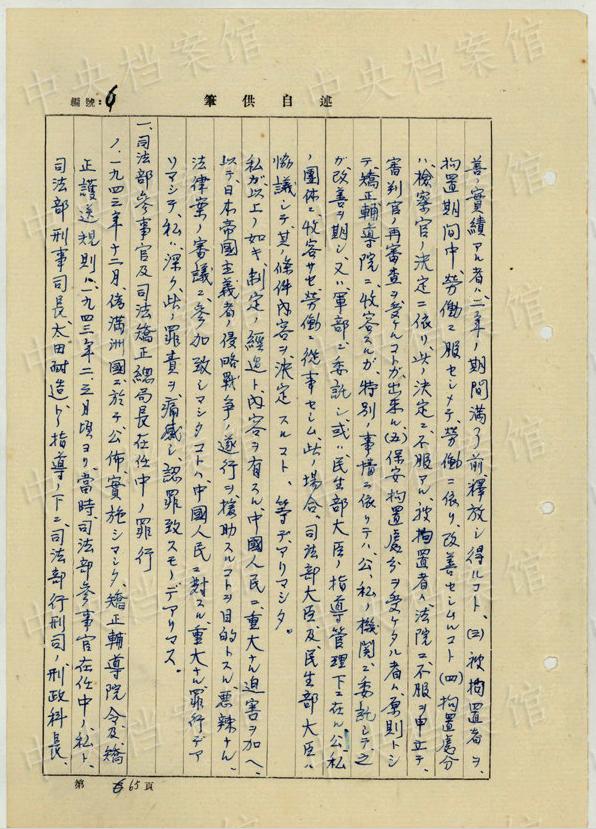 編號：6
筆供自述
善ノ實績アル者ハ、二年ノ期間満了前釋放シ得ルコト、(三)被拘置者ヲ、
拘置期间中勞働ニ服セシメテ、勞働ニ依リ、改善セシムルコト(四)拘置處分
ハ、檢察官ノ決定ニ依リ、此ノ決定ニ不服アル、被拘置者ハ法院ニ不服ヲ申立テ、
審判官ノ再審査ヲ受ケルコトガ出来ル(五)保安拘置處分ヲ受ケタル者ハ、原則トシ
テ、矯正輔導院ニ收容スルガ、特別ノ事情ニ依リテハ、公、私ノ機関ニ委託シテ、之
ガ改善ヲ期シ、又ハ軍部ニ委託シ或ハ民生部大臣ノ指導管理下ニ在ル公私
ノ團体ニ收容サセ勞働ニ從事セシム、此ノ場合、司法部大臣及民生部大臣ハ
協議シテ其ノ條件内容ヲ決定スルコト、等デアリマシタ。
私ガ以上ノ如キ、制定ノ經過ト、内容ヲ有スル、中國人民ニ重大ナル迫害ヲ加ヘ、
以テ日本帝國主義者ノ侵略戰争ノ遂行ヲ援助スルコトヲ目的トスル悪辣ナル、
法律案ノ審議ニ参加致シマシタコトハ、中國人民ニ對スル重大ナル罪行デア
リマシテ、私ハ深ク此ノ罪責ヲ痛感シ認罪致スモノデアリマス。
一、司法部参事官及司法矯正總局長在任中ノ罪行
ノ、一九四三年十二月偽満洲國ニ於テ公佈實施シマシタ、矯正輔導院令及矯
正護送規則ハ、一九四三年二、三月頃ヨリ、當時司法部参事官在任中ノ私ト、
司法部刑事司長太田耐造ノ指導ノ下ニ、司法部行刑司ノ刑政科長、
第 65 頁
中央档案馆